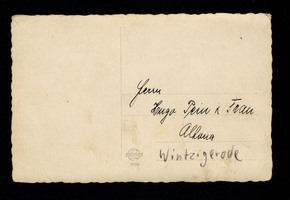 Herrn
Hugo Pein & Frau
Altona
Wintzigerode